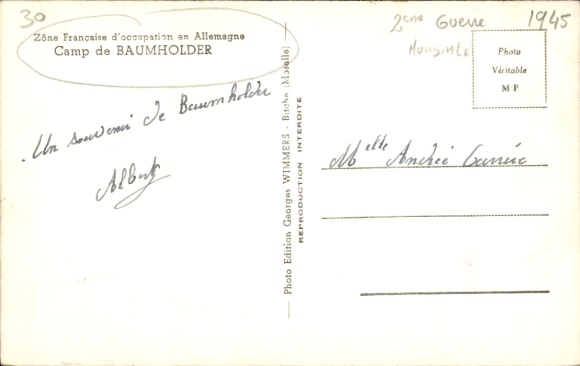 30
2eme Guerre
Mondiale
1945
Zône Française d'occupation en Allemagne
Camp de BAUMHOLDER
Photo
Véritable
M P
Un souvenir de Baumholder
Albert
Melle Andrée
Photo Edition Georges WIMMERS - Bitche (Moselle)
REPRODUCTION INTERDITE